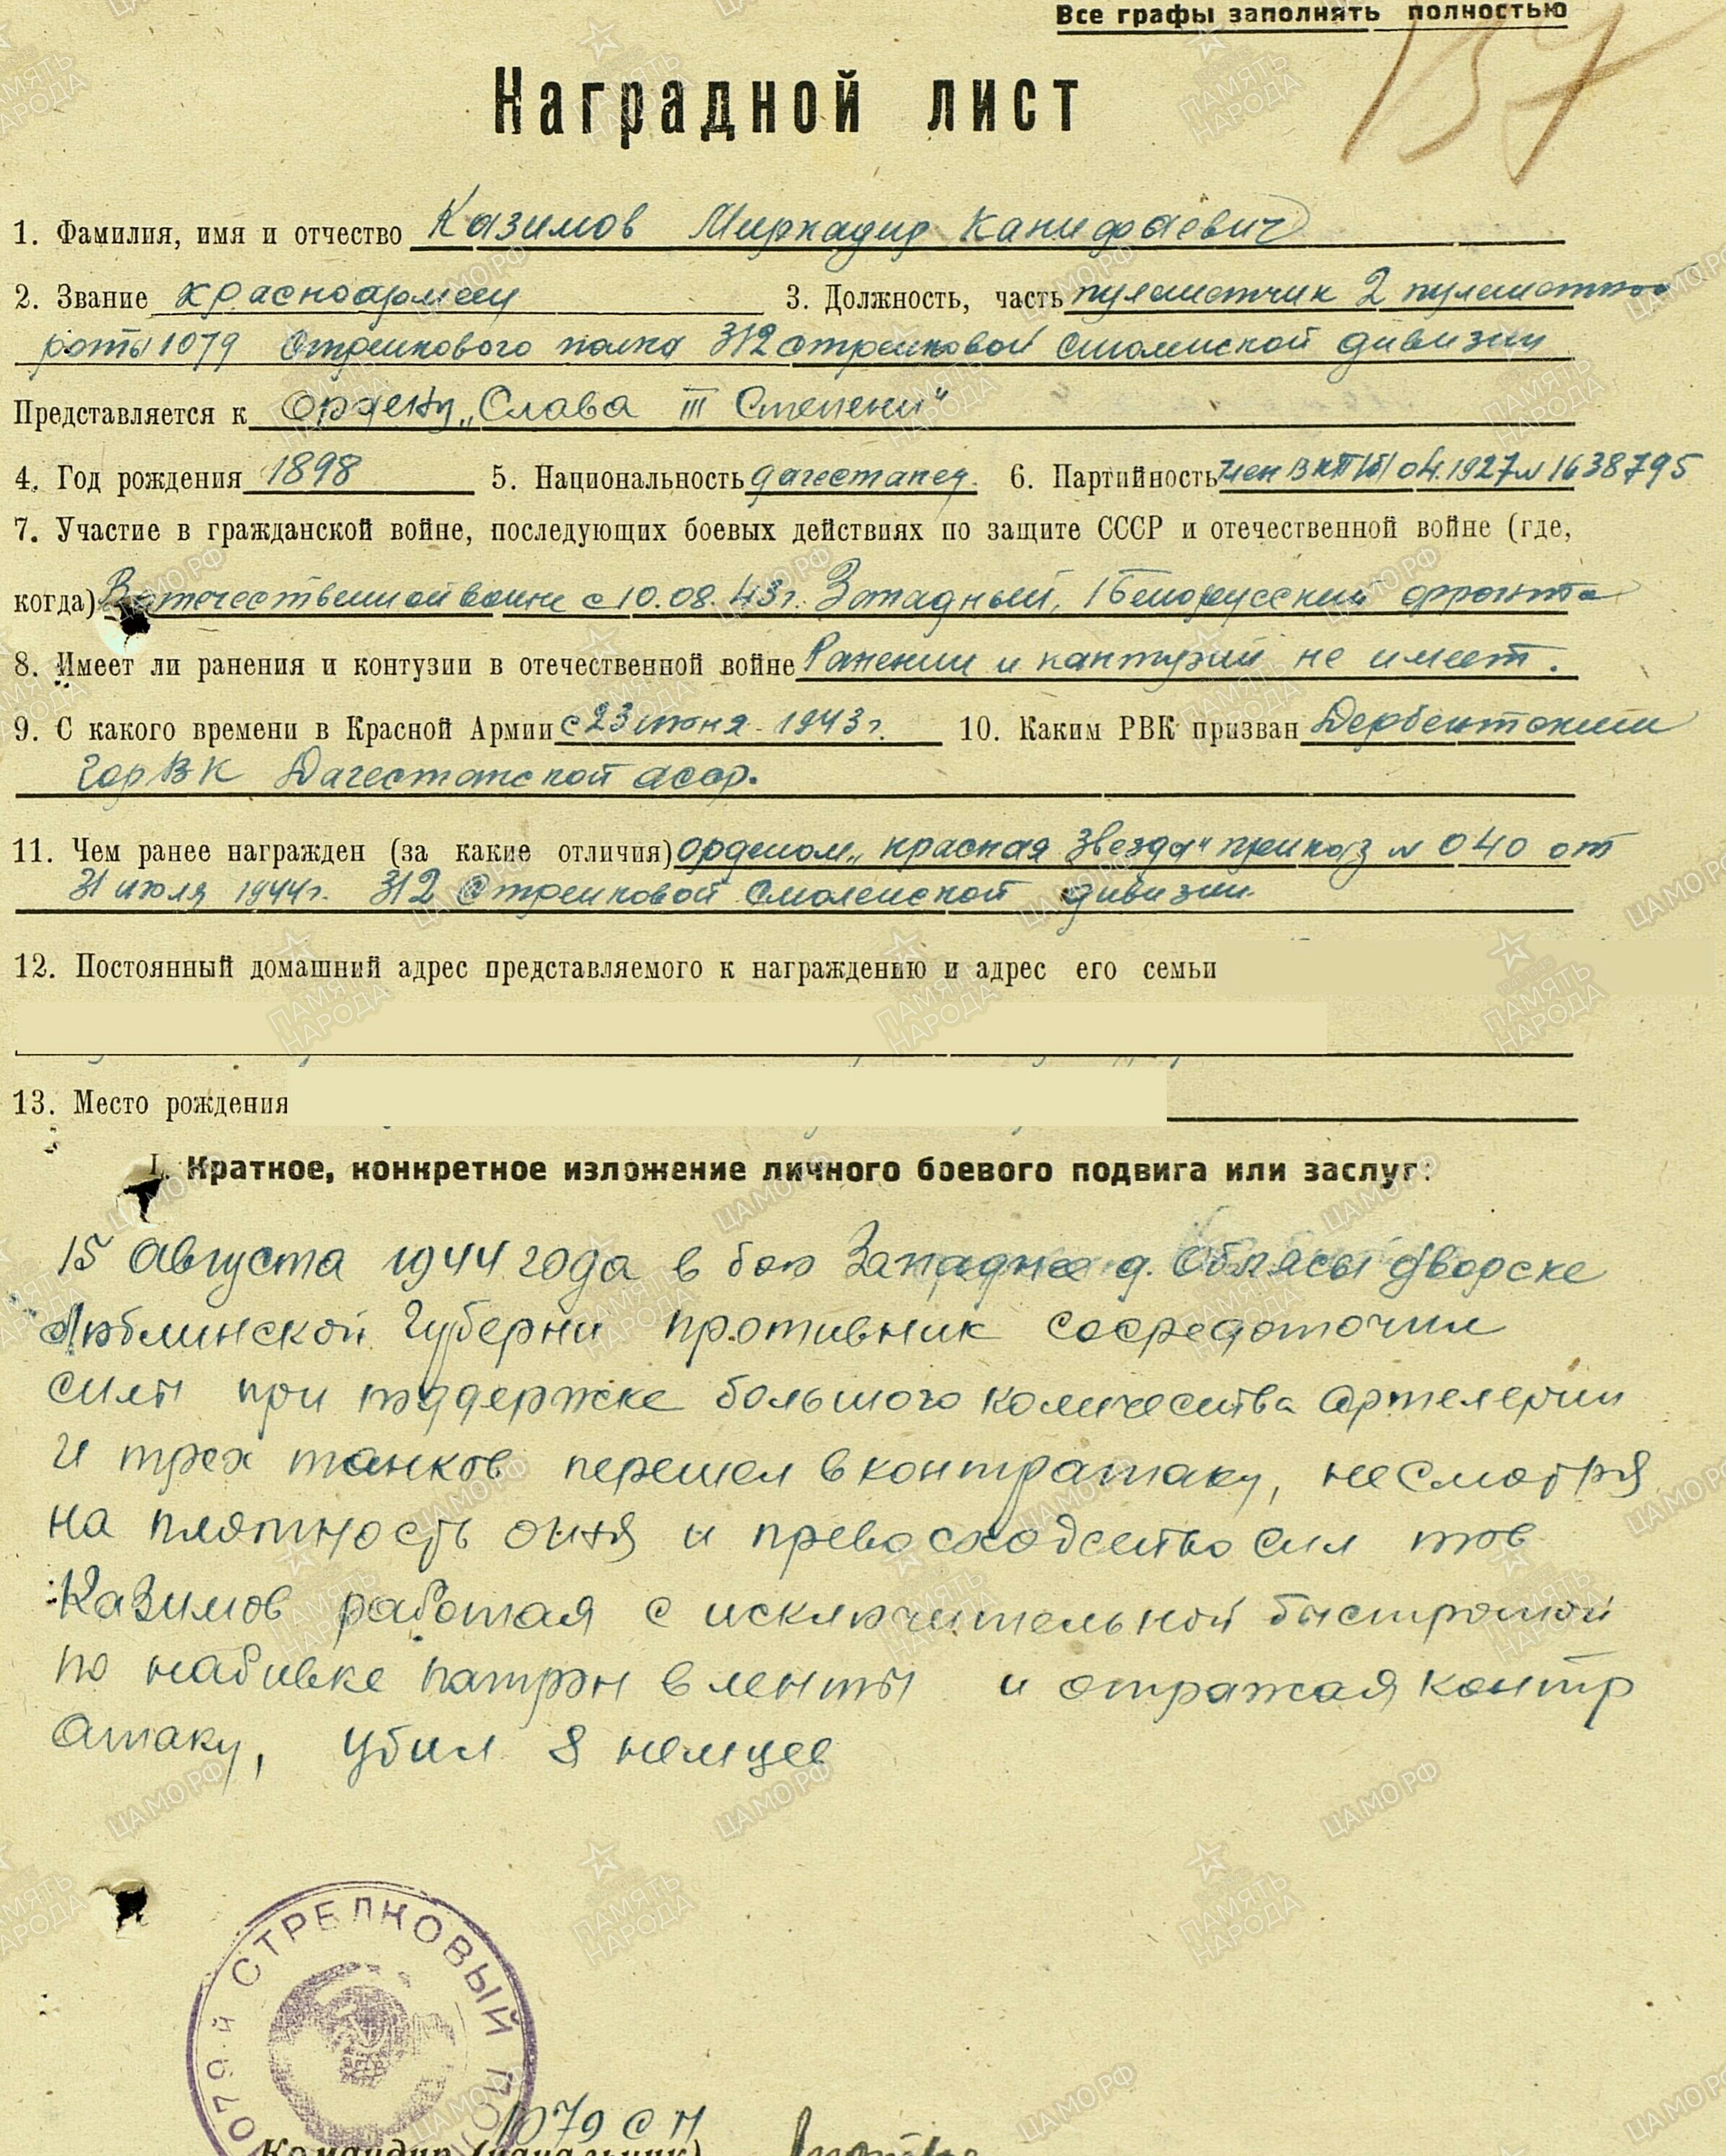 Все графы заполнять полностью
157
Наградной лист
1. Фамилия, имя и отчество Казимов Миркадир Канифаевич
2. Звание красноармеец 3. Должность, часть пулеметчик 2 пулеметной
роты 1079 Стрелкового полка 312 стрелковой Смоленской дивизии
Представляется к Ордену „Слава III Степени"
4. Год рождения 1898 5. Национальность дагестанец. 6. Партийность член ВКП(б) 04.1927 № 1638795
7. Участие в гражданской войне, последующих боевых действиях по защите СССР и отечественной войне (где,
когда) В отечественной войне с 10.08.43г. Западный, 1 Белорусский фронта
8. Имеет ли ранения и контузии в отечественной войне Ранении и кантузий не имеет.
9. С какого времени в Красной Армии с 23 июня 1943 г. 10. Каким РВК призван Дербентским
ГорВК Дагестанской асср.
11. Чем ранее награжден (за какие отличия) орденом „красная звезда" приказ № 040 от
31 июля 1944г. 312 Стрелковой Смоленской дивизии.
12. Постоянный домашний адрес представляемого к награждению и адрес его семьи
13. Место рождения
I. Краткое, конкретное изложение личного боевого подвига или заслуг:
15 Августа 1944 года в бою Западнее д. Облясы дворске
Люблинской Губерни противник сосредоточил
силы при поддержке большого количества артелерии
и трех танков перешел в контратаку, несмотря
на плотность огня и превосходство сил тов
Казимов работая с исключительной быстротой
по набивке патрон в ленты и отражая контр
атаку, убил 8 немцев
1079-й СТРЕЛКОВЫЙ ПОЛК
1079 СП
Командир (начальник)